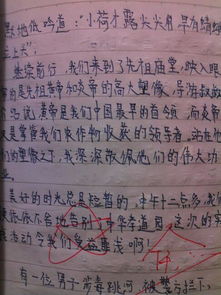 默地吟道："小荷才露尖尖角，早有蜻蜓
立上头"。
继续前行，我们来到了先祖庙堂，映入眼
的是先祖黄帝和炎帝的高大塑像，导游叔叔
说，黄帝是我们中国最早的首领，而炎帝
是掌管我们农作物收获的领导者，站在他
们的塑像下，我深深敬佩他们的伟大功
美好的时光总是短暂的，中午十二点多，我们
依依不舍地告别了中华孝道园，这次的实
践活动令我们受益匪浅啊！
有一位男子涉毒跳河，被警方拦下。